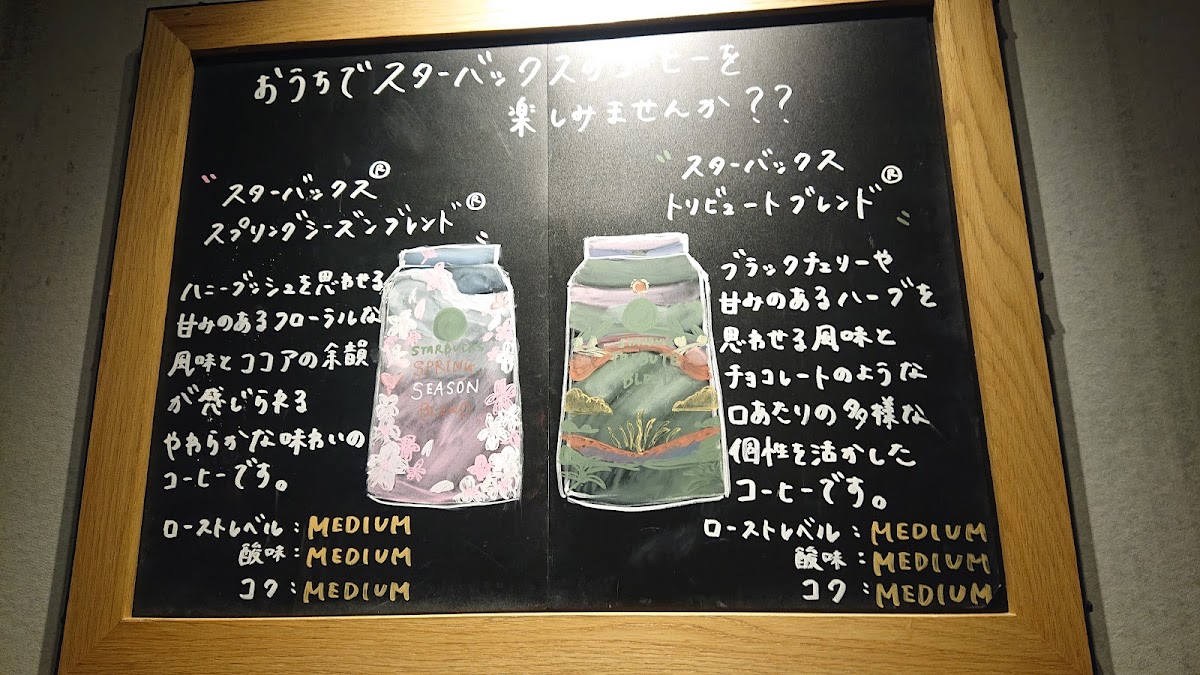 おうちでスターバックスのコーヒーを
楽しみませんか??
"スターバックス®
スプリングシーズンブレンド®"
ハニーブッシュを思わせる
甘みのあるフローラルな
風味とココアの余韻
が感じられる
やわらかな味わいの
コーヒーです。
ローストレベル:MEDIUM
酸味:MEDIUM
コク:MEDIUM
STARBUCKS
SPRING
SEASON
BLEND
"スターバックス
トリビュートブレンド®"
ブラックチェリーや
甘みのあるハーブを
思わせる風味と
チョコレートのような
口あたりの多様な
個性を活かした
コーヒーです。
ローストレベル:MEDIUM
酸味:MEDIUM
コク:MEDIUM
BLEND